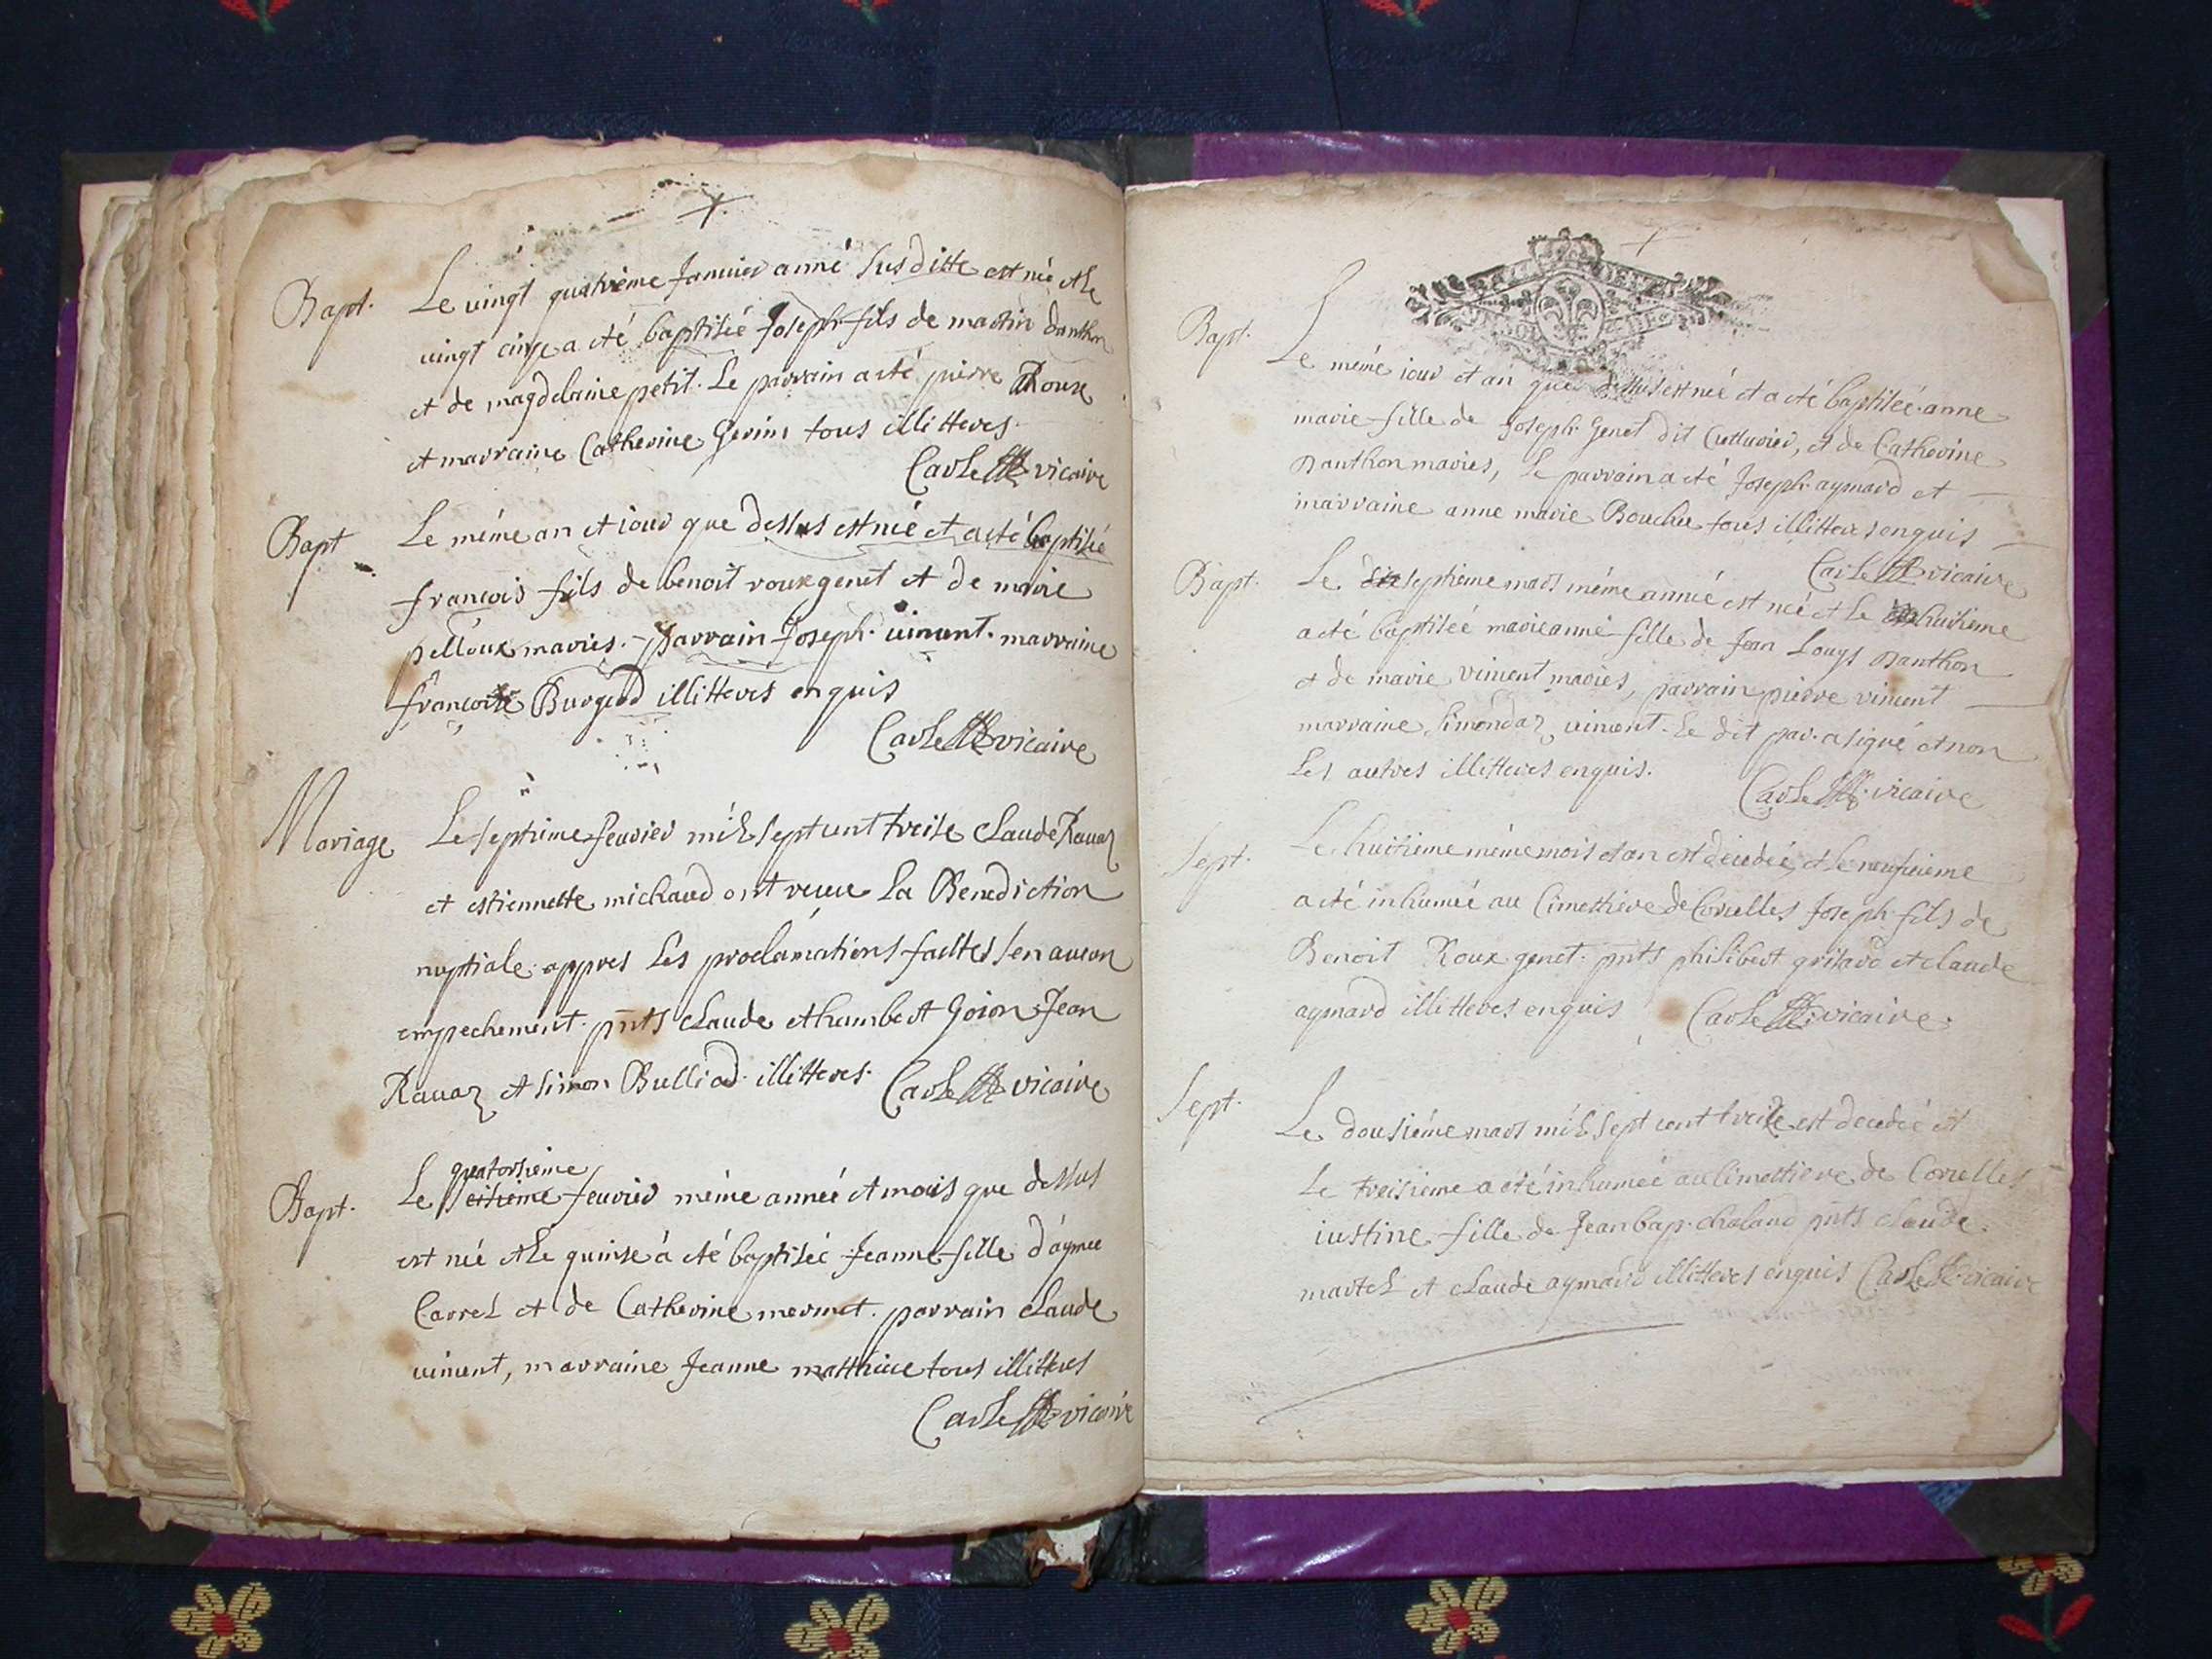 Bapt. Le vingt quatrième Januier anné susditte est née et le
vingt cinq a eté baptiséé Joseph fils de martin danthon
et de magdelaine petit. Le parrain a eté pierre
et marraine Catherine tous illitteres.
Carle vicaire
Bapt Le méme an et iour que dessus est née et a eté baptisé
françois fils de benoit roux genet et de marie
pelloux mariés. parrain Joseph. uincent. marraine
françoise illitteres enquis
Carle vicaire
Mariage Le septieme feurier mil sept cent treise Claude Rauaz
et estiennette michaud ont receu La Benediction
nuptiale appres Les proclamations faittes sen aucun
empechement. pnts Claude et humbert Goion Jean
Rauaz et simon Bulliod. illitteres. Carle vicaire
quatorsieme
Bapt. Le seisieme feurier méme année et mois que dessus
est née et le quinse à eté baptiséé Jeanne fille d'aymee
Carrel et de Catherine mermet. parrain Claude
uincent, marraine Jeanne matthieu tous illitteres
Carle vicaire
Bapt. Le méme iour et an que dessus est née et a eté baptiséé anne
marie fille de Joseph Genet dit, et de Catherine
Danthon mariés, Le parrain a eté Joseph aymard et
marraine anne marie Boucher tous illitteres enquis
Carle vicaire
Bapt. Le septieme mars méme année est née et Le huitieme
a eté baptiséé marie anne fille de Jean Louys Danthon
et de marie vincent mariés, parrain pierre vincent
marraine simondaz uincent. Le dit par. a signé et non
Les autres illitteres enquis.
Carle vicaire
Sept. Le huitieme méme mois et an est décédéé et le neufuieme
a eté inhumé au Cimettiere de Corcelles Joseph fils de
Benoit Roux genet. pnts philibert et claude
aymard illitteres enquis Carle vicaire.
Sept. Le dousiéme mars mil sept cent treize est decedéé et
Le treisieme a eté inhuméé au Cimettiere de Corcelles
iustine fille de Jean bap. chaland pnts Claude
martel et Claude aymard illitteres enquis Carle vicaire